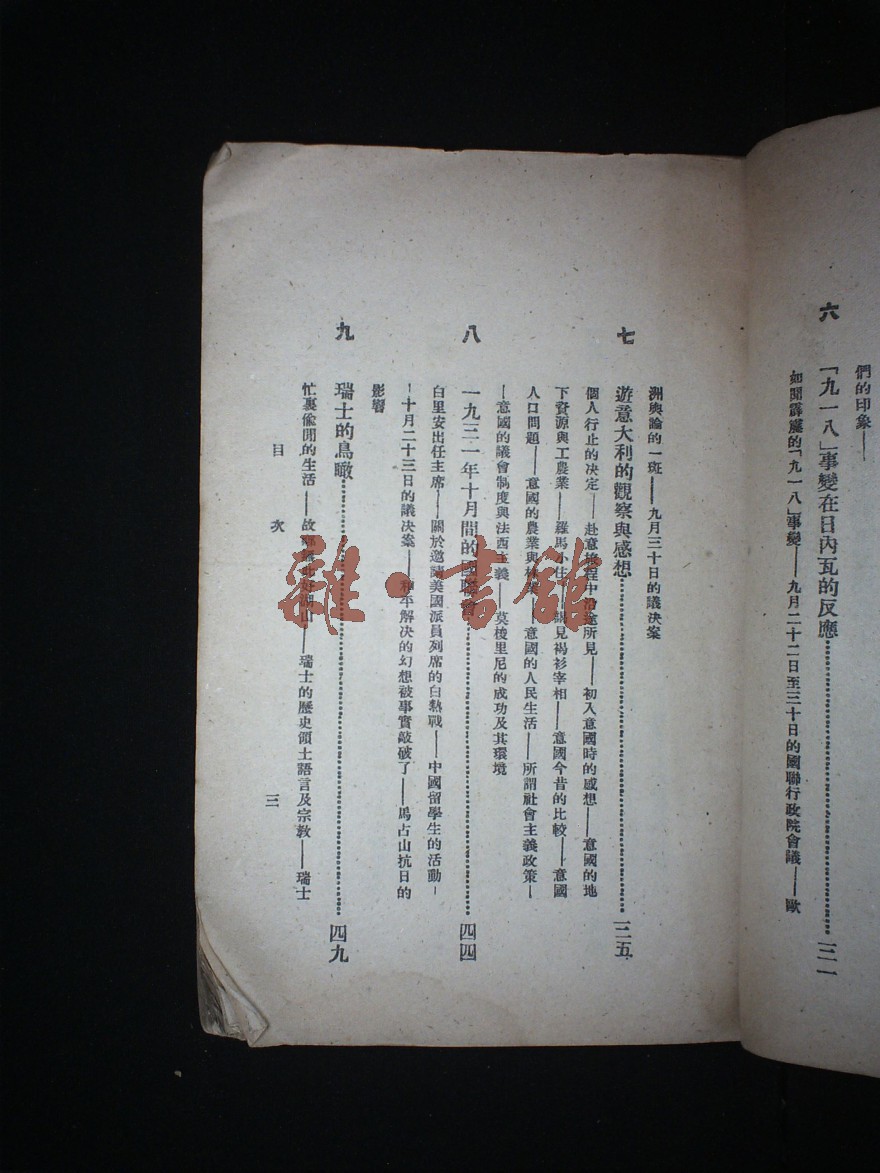 們的印象——
六
「九一八」事變在日內瓦的反應 三一
如聞霹靂的「九一八」事變——九月二十二日至三十日的國聯行政院會議——歐
洲輿論的一斑——九月三十日的議決案
七
遊意大利的觀察與感想 三五
個人行止的決定——赴意旅程中沿途所見——初入意國時的感想——意國的地
下資源與工農業——羅馬小住——謁見褐衫宰相——意國今昔的比較——意國
人口問題——意國的農業與林業——意國的人民生活——所謂社會主義政策—
—意國的議會制度與法西主義——莫梭里尼的成功及其環境
八
一九三一年十月間的國聯會 四四
白里安出任主席——關於邀請美國派員列席的白熱戰——中國留學生的活動—
—十月二十三日的議決案——和平解決的幻想被事實敲破了——馬占山抗日的
影響
九
瑞士的鳥瞰 四九
忙裏偷閒的生活——故鄉無此好湖山——瑞士的歷史領土語言及宗教——瑞士
目次
三
雜·書館